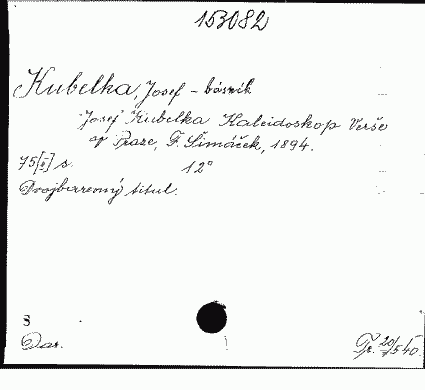 153082
Kubelka, Josef - básník
Josef Kubelka Kaleidoskop Verše
v Praze, F. Šimáček, 1894.
75 [I] s. 12°
Dvojbarevný titul.
S
Dar. Př. 20/540.